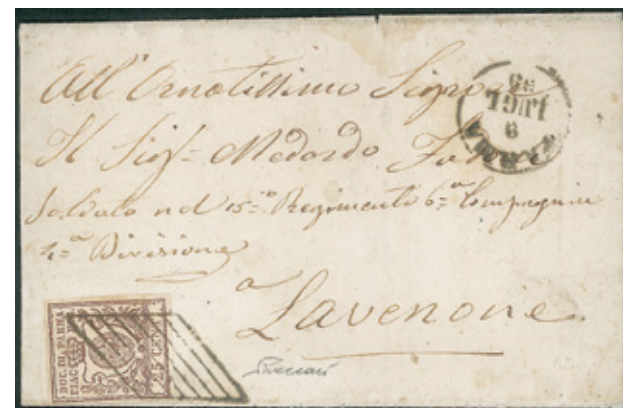 All' Ornatissimo Signore
Il Sigr Medardo
Soldato nel 15º Regimento 6ª Compagnia
Divisione
a
Lavenone
PARMA
9
LUGL
59
DUC. DI PARMA
PIAC.
25 CENT